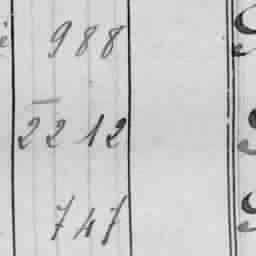 988
2212
747